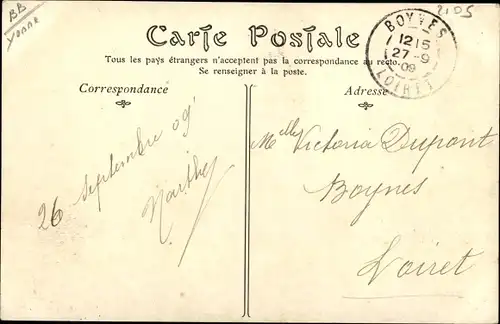 BB
Yonne
2105
Carte Postale
Tous les pays étrangers n'acceptent pas la correspondance au recto.
Se renseigner à la poste.
BOYNES
12 15
27-9
09
LOIRET
Correspondance
Adresse
26 Septembre 09
Marthe
Melle Victoria Dupont
Boynes
Loiret